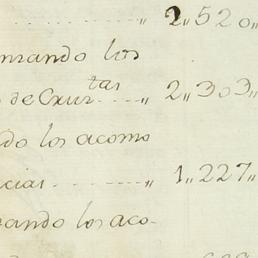 " 2" 520"
nzando los
de Cxur.tas " 2" 303"
do los acomo
cias " 1" 227"
zando los aco-